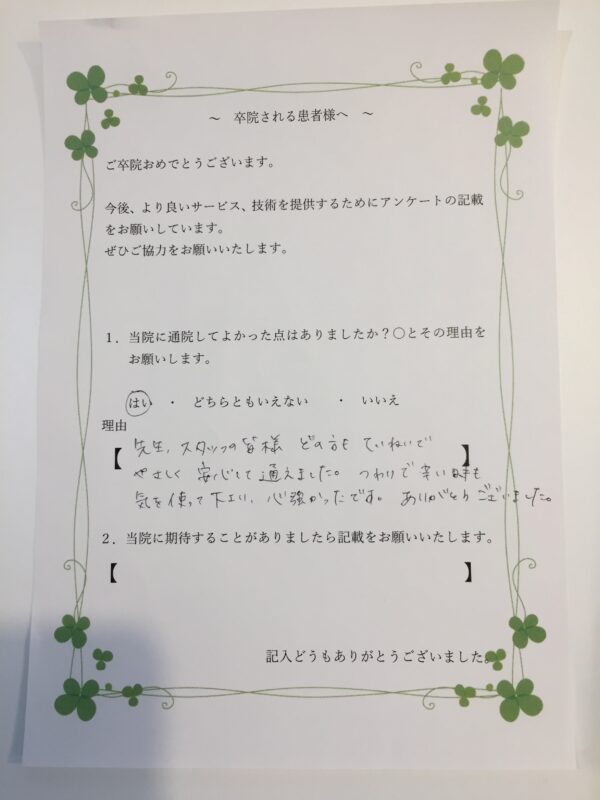 ～ 卒院される患者様へ ～
ご卒院おめでとうございます。
今後、より良いサービス、技術を提供するためにアンケートの記載
をお願いしています。
ぜひご協力をお願いいたします。
1．当院に通院してよかった点はありましたか？〇とその理由を
お願いします。
はい ・ どちらともいえない ・ いいえ
理由
【 先生、スタッフの皆様 どの方も ていねいで 】
やさしく 安心して通えました。 つわりで辛い時も
気を使って下さり、心強かったです。 ありがとうございました。
2．当院に期待することがありましたら記載をお願いいたします。
【 】
記入どうもありがとうございました。